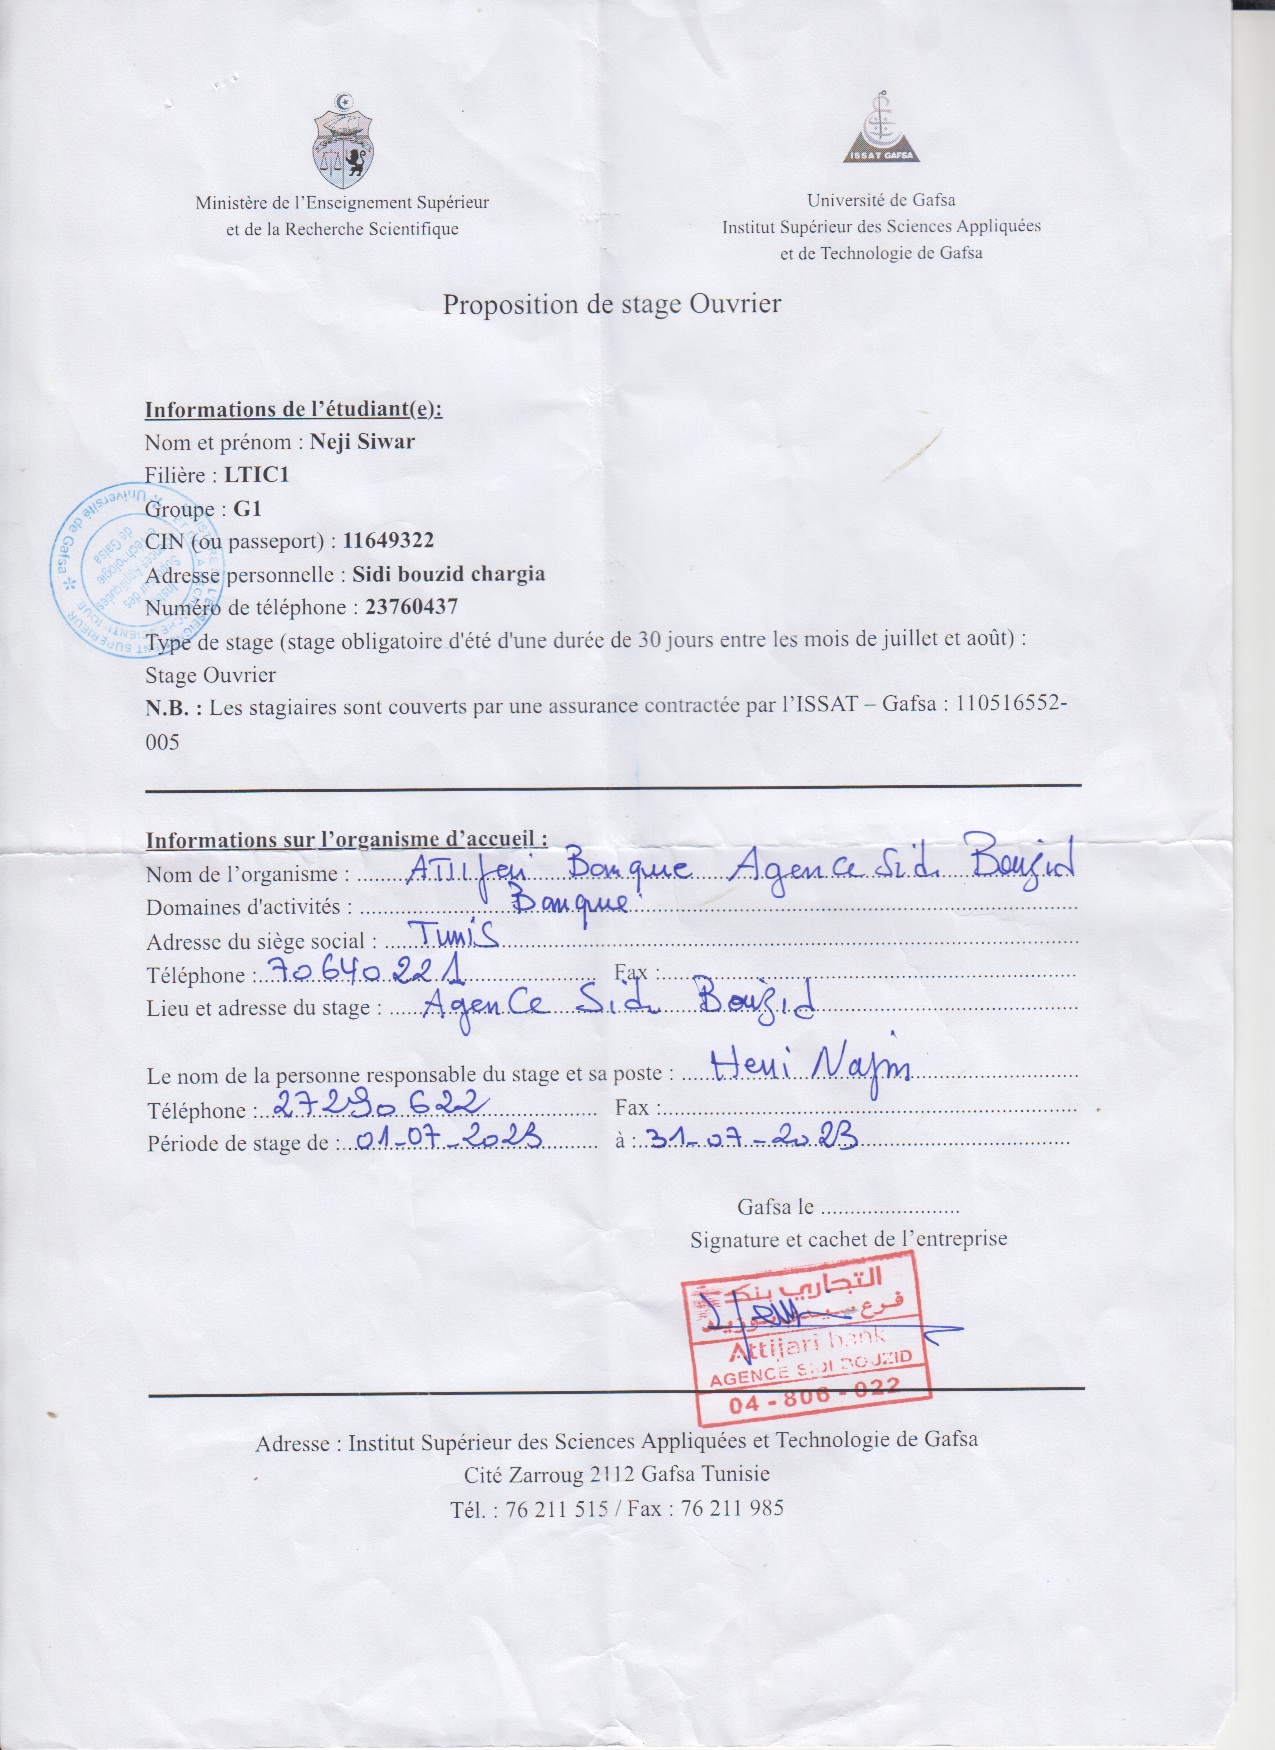 ISSAT GAFSA
Ministère de l'Enseignement Supérieur
et de la Recherche Scientifique
Université de Gafsa
Institut Supérieur des Sciences Appliquées
et de Technologie de Gafsa
Proposition de stage Ouvrier
Informations de l'étudiant(e):
Nom et prénom : Neji Siwar
Filière : LTIC1
Groupe : G1
CIN (ou passeport) : 11649322
Adresse personnelle : Sidi bouzid chargia
Numéro de téléphone : 23760437
Type de stage (stage obligatoire d'été d'une durée de 30 jours entre les mois de juillet et août) :
Stage Ouvrier
N.B. : Les stagiaires sont couverts par une assurance contractée par l'ISSAT – Gafsa : 110516552-
005
Université de Gafsa
Informations sur l'organisme d'accueil :
Nom de l'organisme : Banque Agence Sidi Bouzid
Domaines d'activités : Banque
Adresse du siège social : Tunis
Téléphone : 70 640 221 Fax :
Lieu et adresse du stage : Agence Sidi Bouzid
Le nom de la personne responsable du stage et sa poste : Heni
Téléphone : 27290 622 Fax :
Période de stage de : 01-07-2023 à : 31-07-2023
Gafsa le ........................
Signature et cachet de l'entreprise
التجاري بنك
فرع سيدي بوزيد
Attijari bank
AGENCE SIDI BOUZID
04 - 806 - 022
Adresse : Institut Supérieur des Sciences Appliquées et Technologie de Gafsa
Cité Zarroug 2112 Gafsa Tunisie
Tél. : 76 211 515 / Fax : 76 211 985